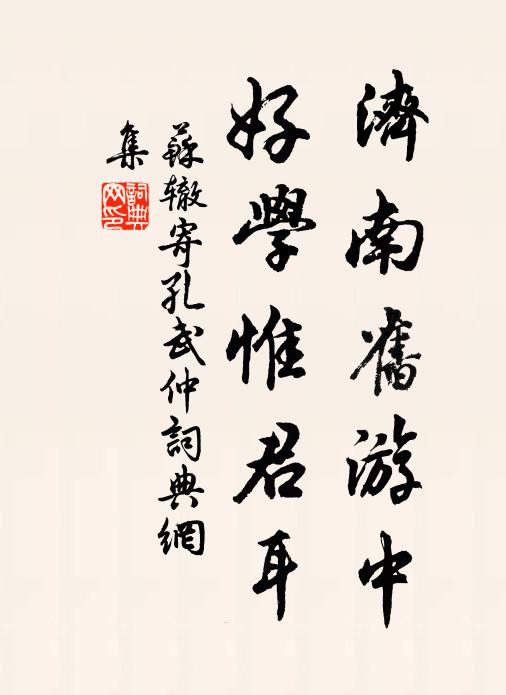 濟南舊游中
好學惟君耳
蘇轍寄孔武仲詞典網
集
詞典
网印